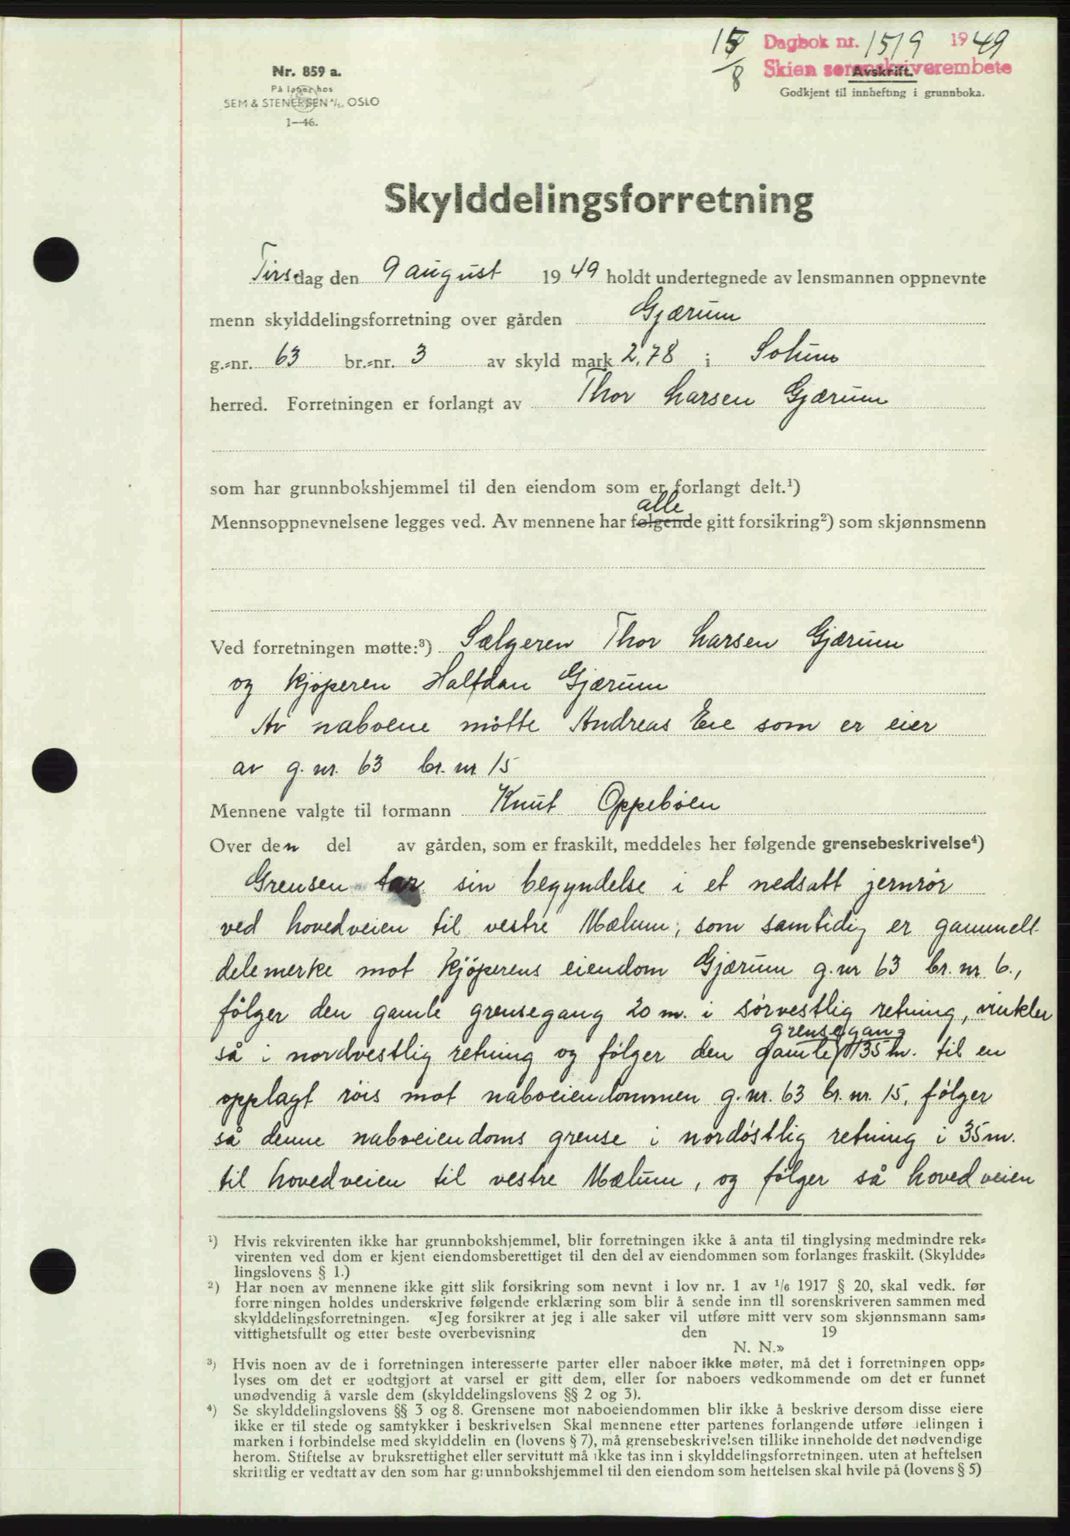 15/8 Dagbok nr. 1519 1949
Skien sorenskriverembete
Avskrift.
Godkjent til innhefting i grunnboka.
Nr. 859 a.
På lager hos
SEM & STENERSEN A/S, OSLO
1—46.
Skylddelingsforretning
Tirsdag den 9 august 1949 holdt undertegnede av lensmannen oppnevnte
menn skylddelingsforretning over gården Gjærum
g.-nr. 63 br.-nr. 3 av skyld mark 2,78 i Solum
herred. Forretningen er forlangt av Thor Larsen Gjærum
som har grunnbokshjemmel til den eiendom som er forlangt delt.¹)
alle
Mennsoppnevnelsene legges ved. Av mennene har følgende gitt forsikring²) som skjønnsmenn
Ved forretningen møtte:³) Sælgeren Thor Larsen Gjærum
og kjøperen Halfdan Gjærum
Av naboene møtte Andreas Eie som er eier
av g. nr. 63 br. nr 15
Mennene valgte til formann Knut Oppebøen
Over den del av gården, som er fraskilt, meddeles her følgende grensebeskrivelse⁴)
Grensen tar sin begyndelse i et nedsatt jernrør
ved hovedveien til vestre Mælum, som samtidig er gammelt
delemerke mot kjøperens eiendom Gjærum g. nr 63 br. nr 6.,
følger den gamle grensegang 20 m. i sørvestlig retning, vinkler
grensegang
så i nordvestlig retning og følger den gamle 135 m. til en
opplagt røis mot naboeiendommen g. nr. 63 br. nr. 15, følger
så denne naboeiendoms grense i nordøstlig retning i 35 m.
til hovedveien til vestre Mælum, og følger så hovedveien
¹) Hvis rekvirenten ikke har grunnbokshjemmel, blir forretningen ikke å anta til tinglysing medmindre rek-
virenten ved dom er kjent eiendomsberettiget til den del av eiendommen som forlanges fraskilt. (Skyldde-
lingslovens § 1.)
²) Har noen av mennene ikke gitt slik forsikring som nevnt i lov nr. 1 av 1/6 1917 § 20, skal vedk. før
forretningen holdes underskrive følgende erklæring som blir å sende inn til sorenskriveren sammen med
skylddelingsforretningen. «Jeg forsikrer at jeg i alle saker vil utføre mitt verv som skjønnsmann sam-
vittighetsfullt og etter beste overbevisning den 19
N. N.»
³) Hvis noen av de i forretningen interesserte parter eller naboer ikke møter, må det i forretningen opp-
lyses om det er godtgjort at varsel er gitt dem, eller for naboers vedkommende om det er funnet
unødvendig å varsle dem (skylddelingslovens §§ 2 og 3).
⁴) Se skylddelingslovens §§ 3 og 8. Grensene mot naboeiendommen blir ikke å beskrive dersom disse eiere
ikke er til stede og samtykker i beskrivelsen Skal mennene etter partenes forlangende utføre delingen i
marken i forbindelse med skylddelingen (lovens § 7), må grensebeskrivelsen tillike inneholde det nødvendige
herom. Stiftelse av bruksrettighet eller servitutt må ikke tas inn i skylddelingsforretningen. uten at heftelsen
skriftlig er vedtatt av den som har grunnbokshjemmel til den eiendom som heftelsen skal hvile på (lovens § 5)